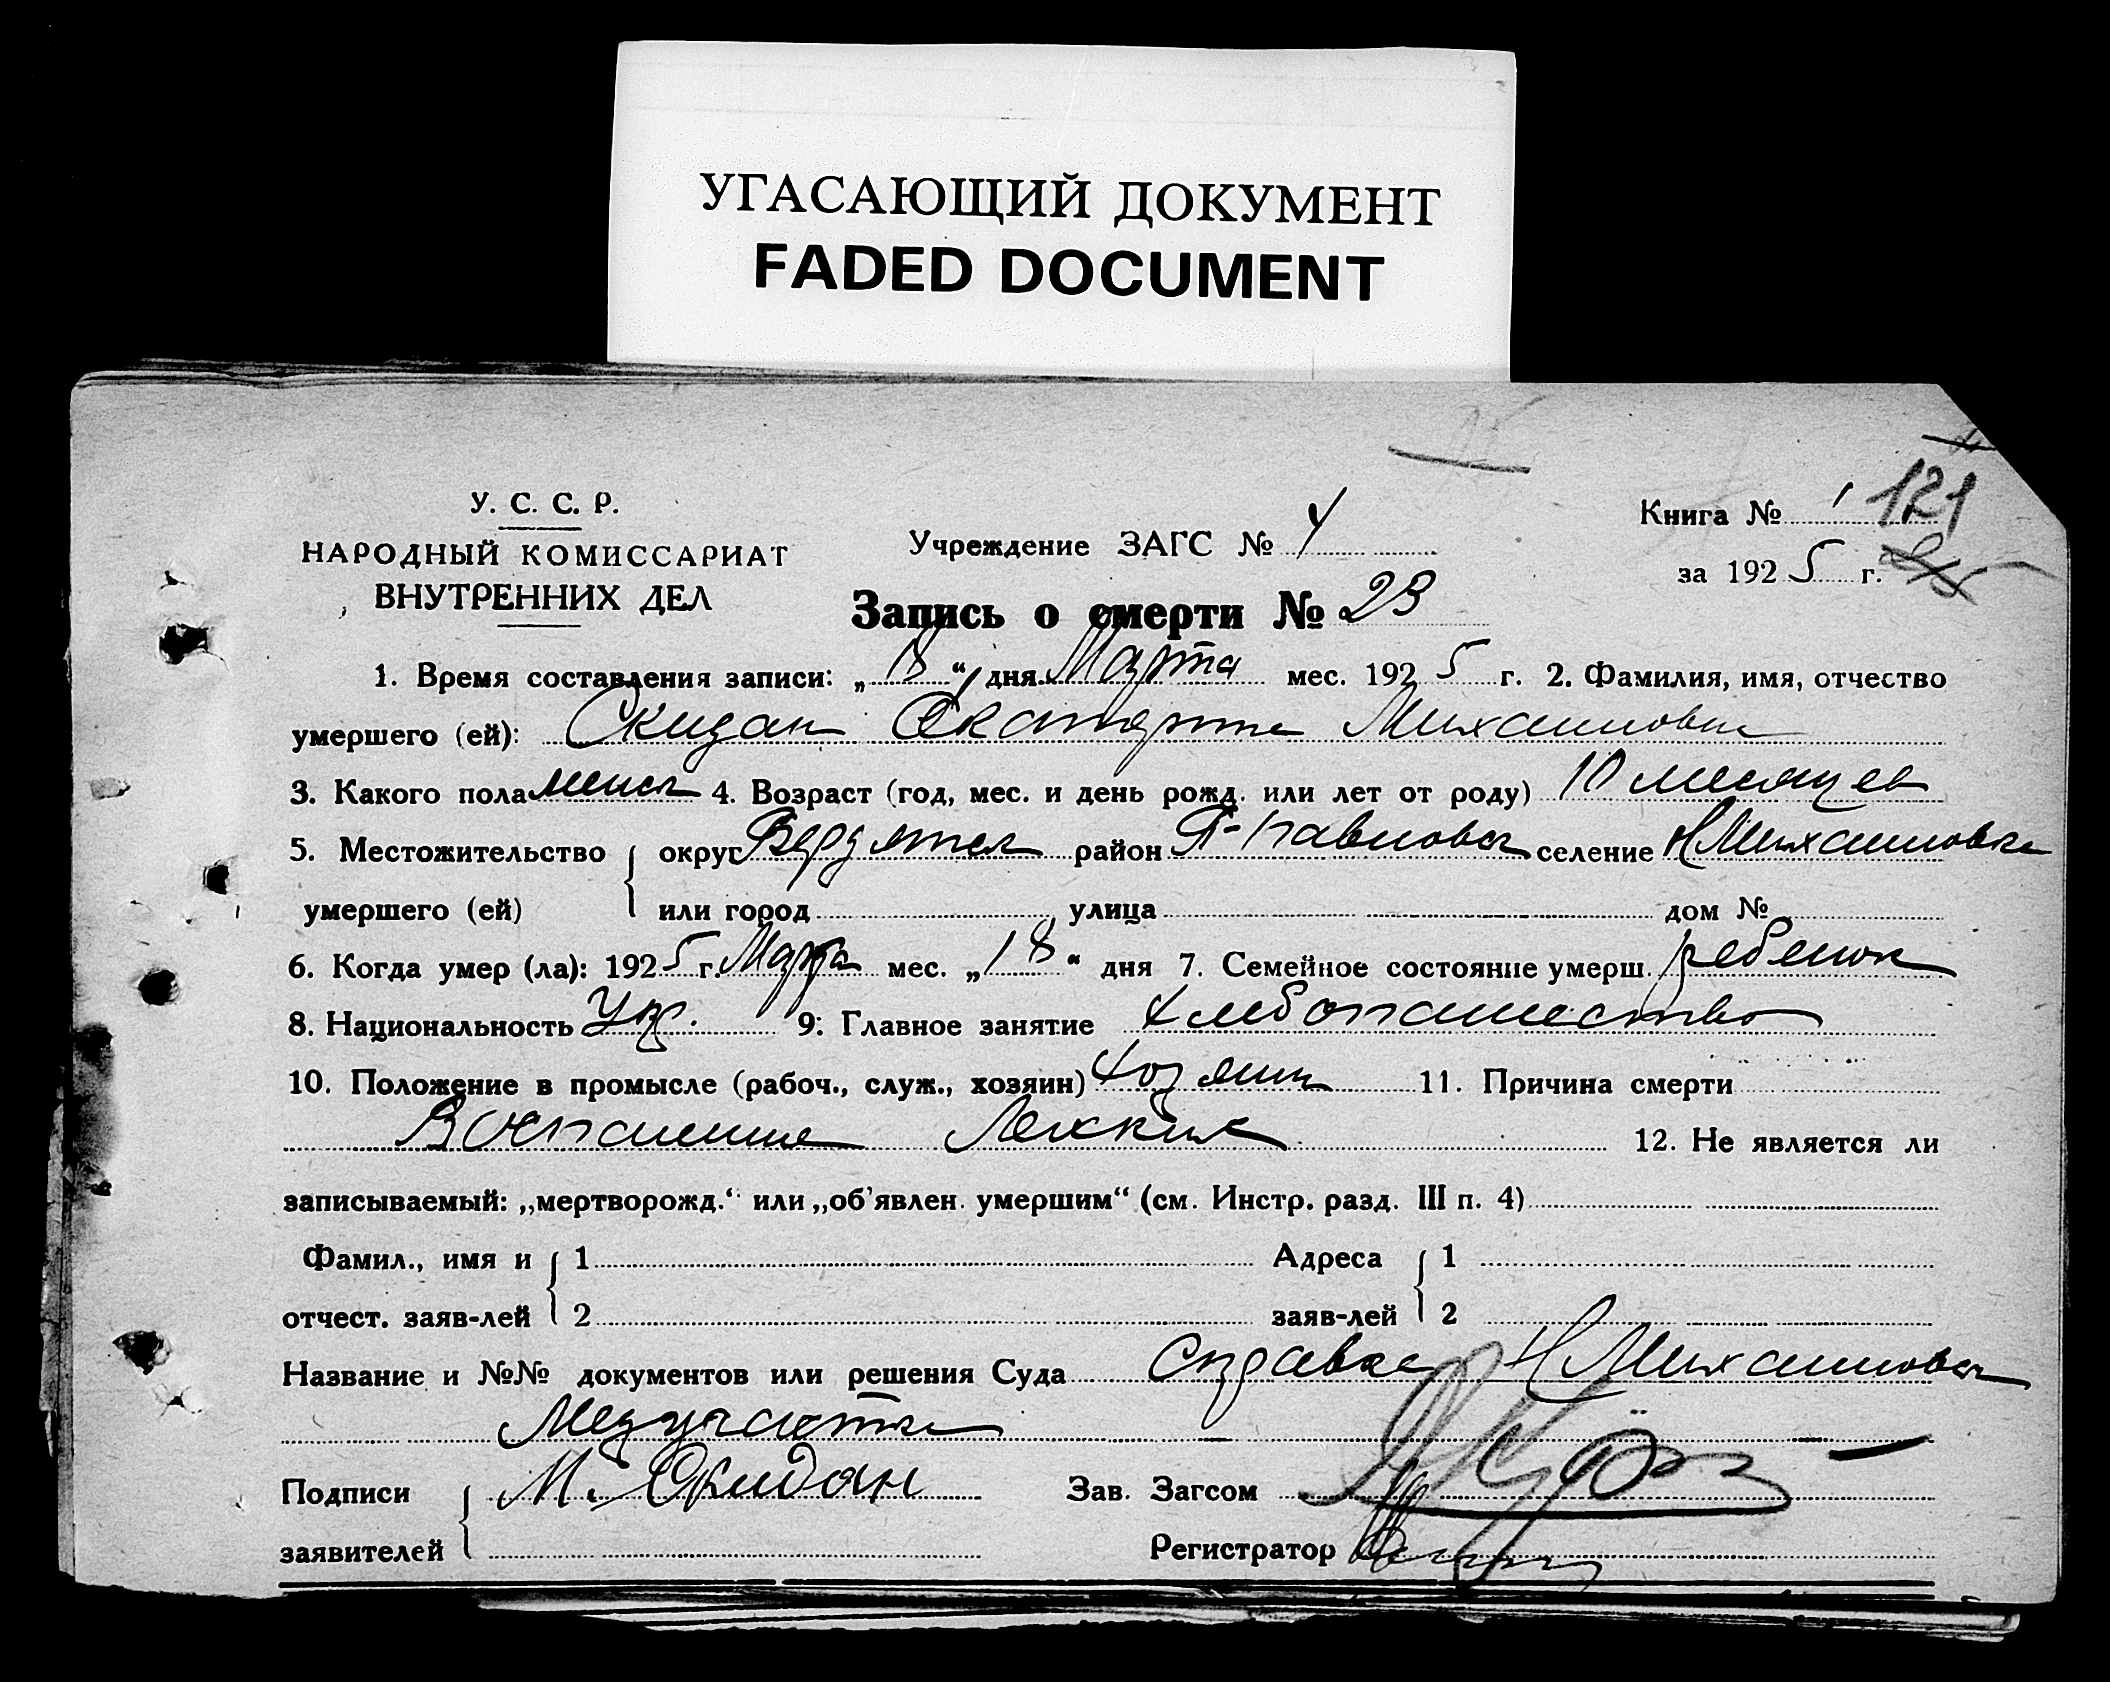 УГАСАЮЩИЙ ДОКУМЕНТ
FADED DOCUMENT
У. С. С. Р.
НАРОДНЫЙ КОМИССАРИАТ
ВНУТРЕННИХ ДЕЛ
Учреждение ЗАГС № 4
Книга № 1 121
за 1925 г.
Запись о смерти № 23
1. Время составления записи: „18“ дня Марта мес. 1925 г. 2. Фамилия, имя, отчество
умершего (ей): Скидан Екатерина Михайловна
3. Какого пола женск 4. Возраст (год, мес. и день рожд. или лет от роду) 10 месяцев
5. Местожительство округ Бердянск район селение Н Михайловка
умершего (ей) или город улица дом №
6. Когда умер (ла): 1925 г. Марта мес. „18“ дня 7. Семейное состояние умерш. ребенок
8. Национальность Укр. 9. Главное занятие хлебопашество
10. Положение в промысле (рабоч., служ., хозяин) хозяин 11. Причина смерти
Воспаление Легких 12. Не является ли
записываемый: „мертворожд.“ или „об'явлен. умершим“ (см. Инстр. разд. III п. 4)
Фамил., имя и 1 Адреса 1
отчест. заяв-лей 2 заяв-лей 2
Название и №№ документов или решения Суда Справка Н Михайловск
Медучастка
Подписи М. Скидан Зав. Загсом
заявителей Регистратор